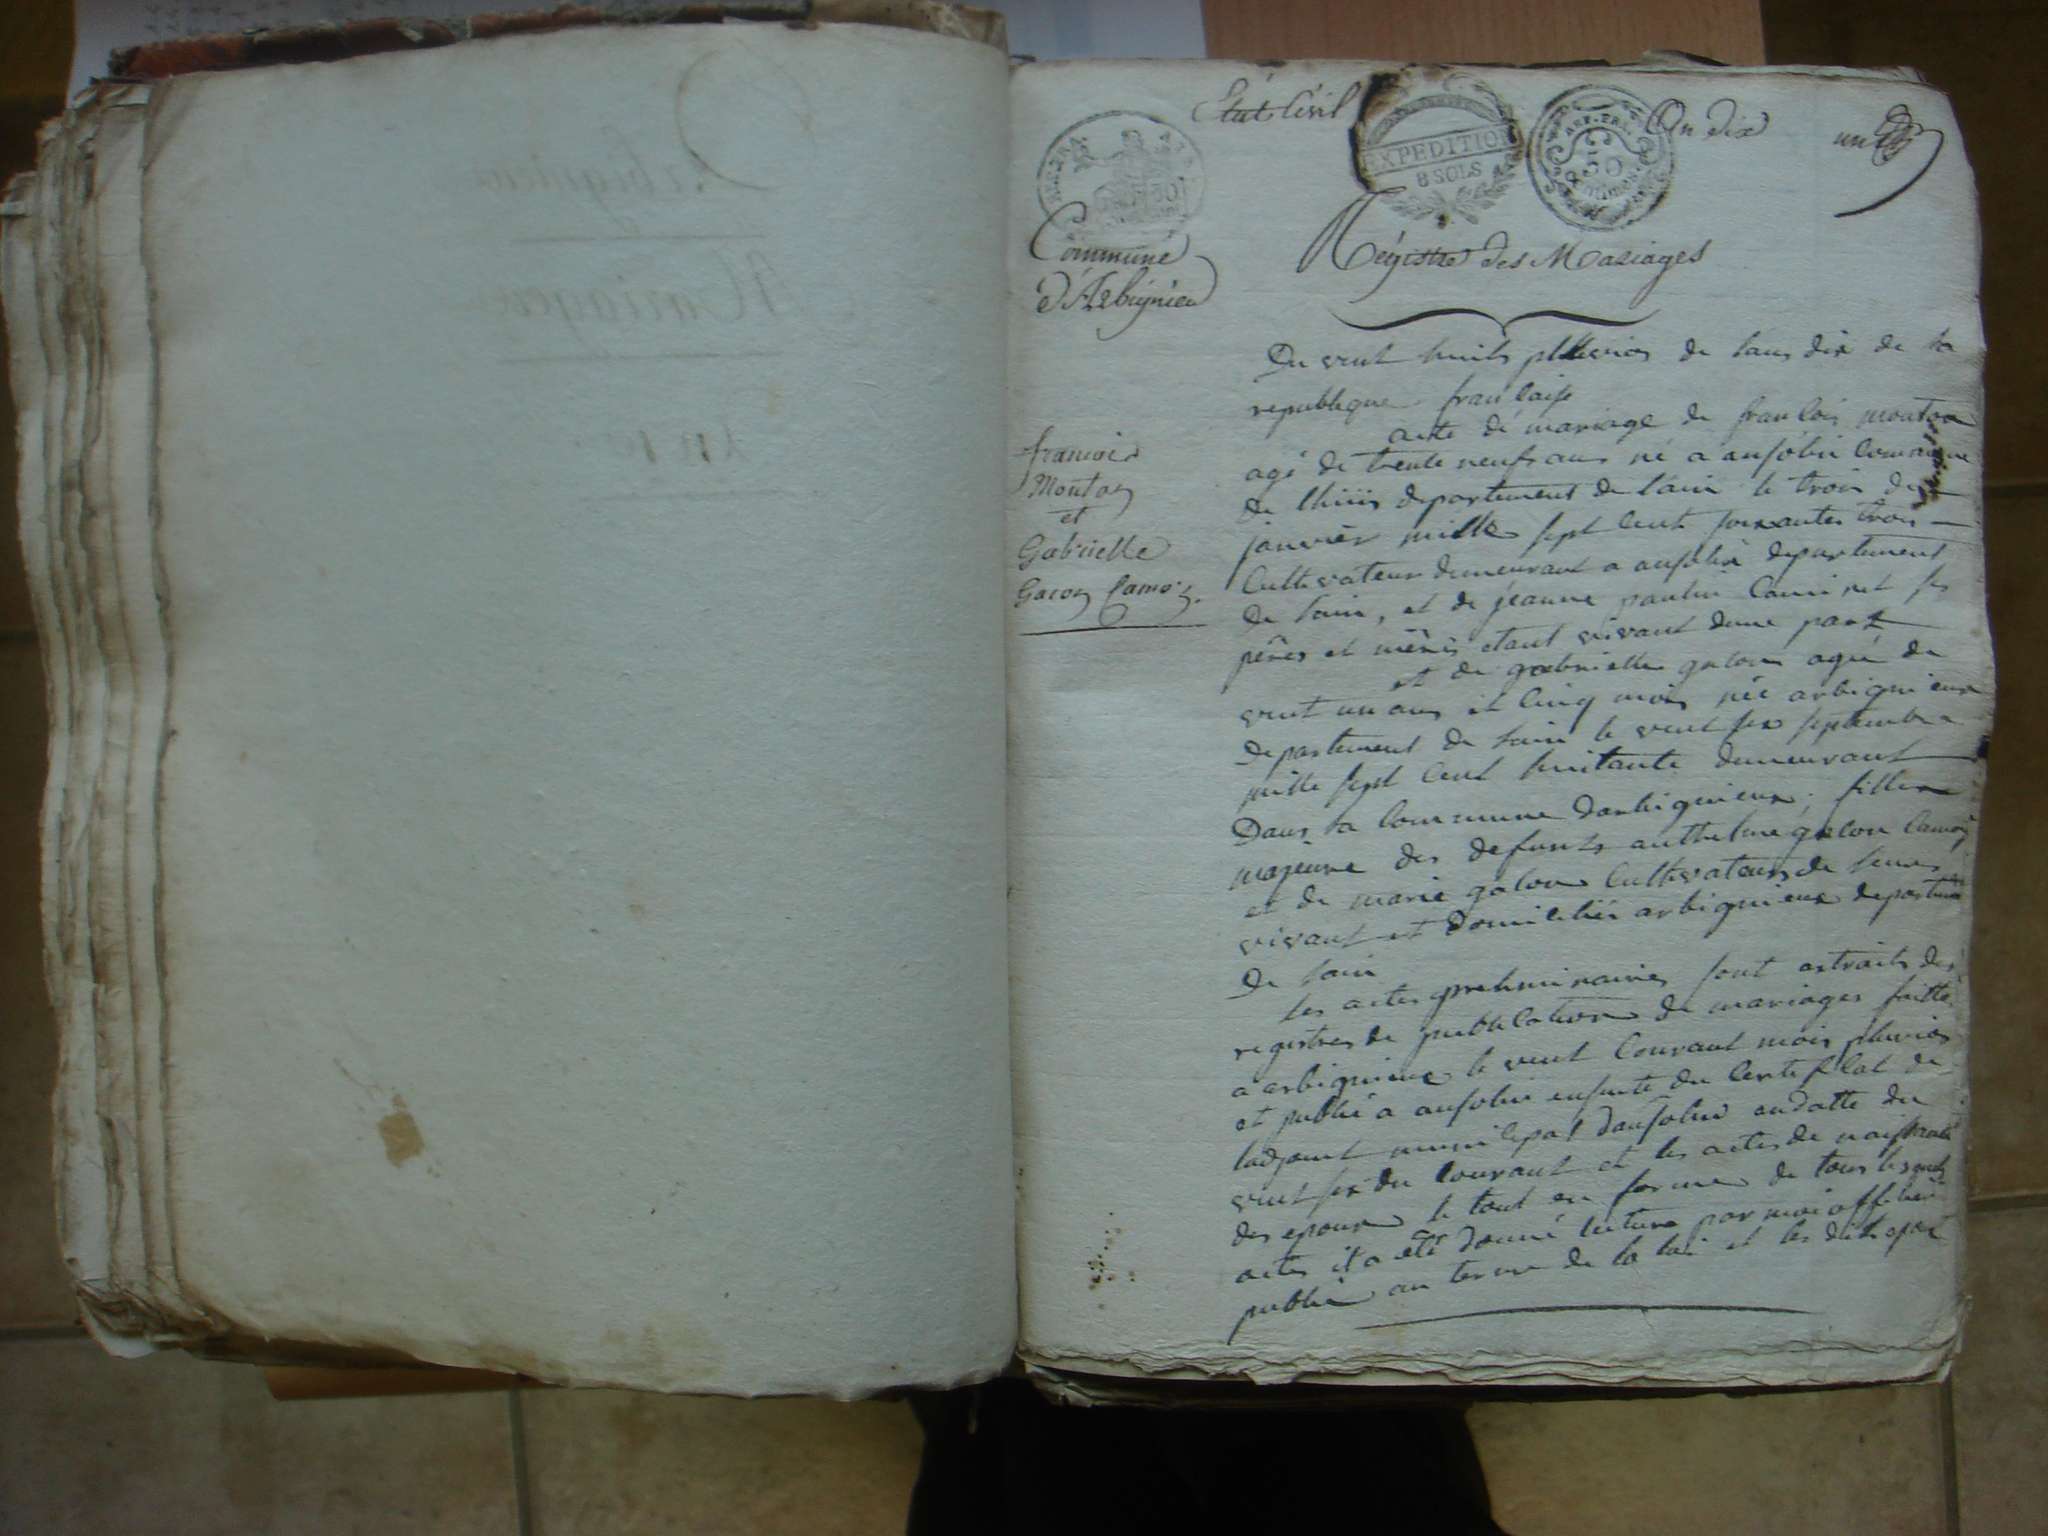 Etat Civil
EXPEDITION
8 SOLS
REP. FRA.
50
Centimes
An dix
un
REP. FRA.
50
Commune
d'Arbignieu
Régistre des Mariages
francois
Mouton
et
Gabrielle
Gacon Camoz.
Du vent huits pluvios de lans dix de la
republique francaise
acte de mariage de francois mouton
agé de trente neuf ans né a ansolin commune
de lhuis departement de lain le trois de
janvier mille sept cent soixantes trois
Cultivateur demeurant a ansolin departement
de lain, et de jeanne paulin caminet ses
pères et mères etant vivant dune part
et de gabrielle gacon agée de
vent un ans et cinq mois née arbignieux
departement de lain le vent six septembre
mille sept cent huitante demeurant
Dans la commune darbignieux, filles
majeure des defunts anthelme gacon camoz
et de marie gacon Cultivateurs de leurs
vivant et domiciliés arbignieux departement
de lain
les actes preliminaires sont extraits des
registres de publication de mariages faitte
a arbignieux le vent courant mois pluvios
et publié a ansolin ensuite du certificat de
ladjoint municipal dansolin en datte du
vent six du courant et les actes de naissance
des epoux le tout en forme de tous lesquels
actes il a été donné lecture par moi officier
public au terme de la loi et les dits epoux